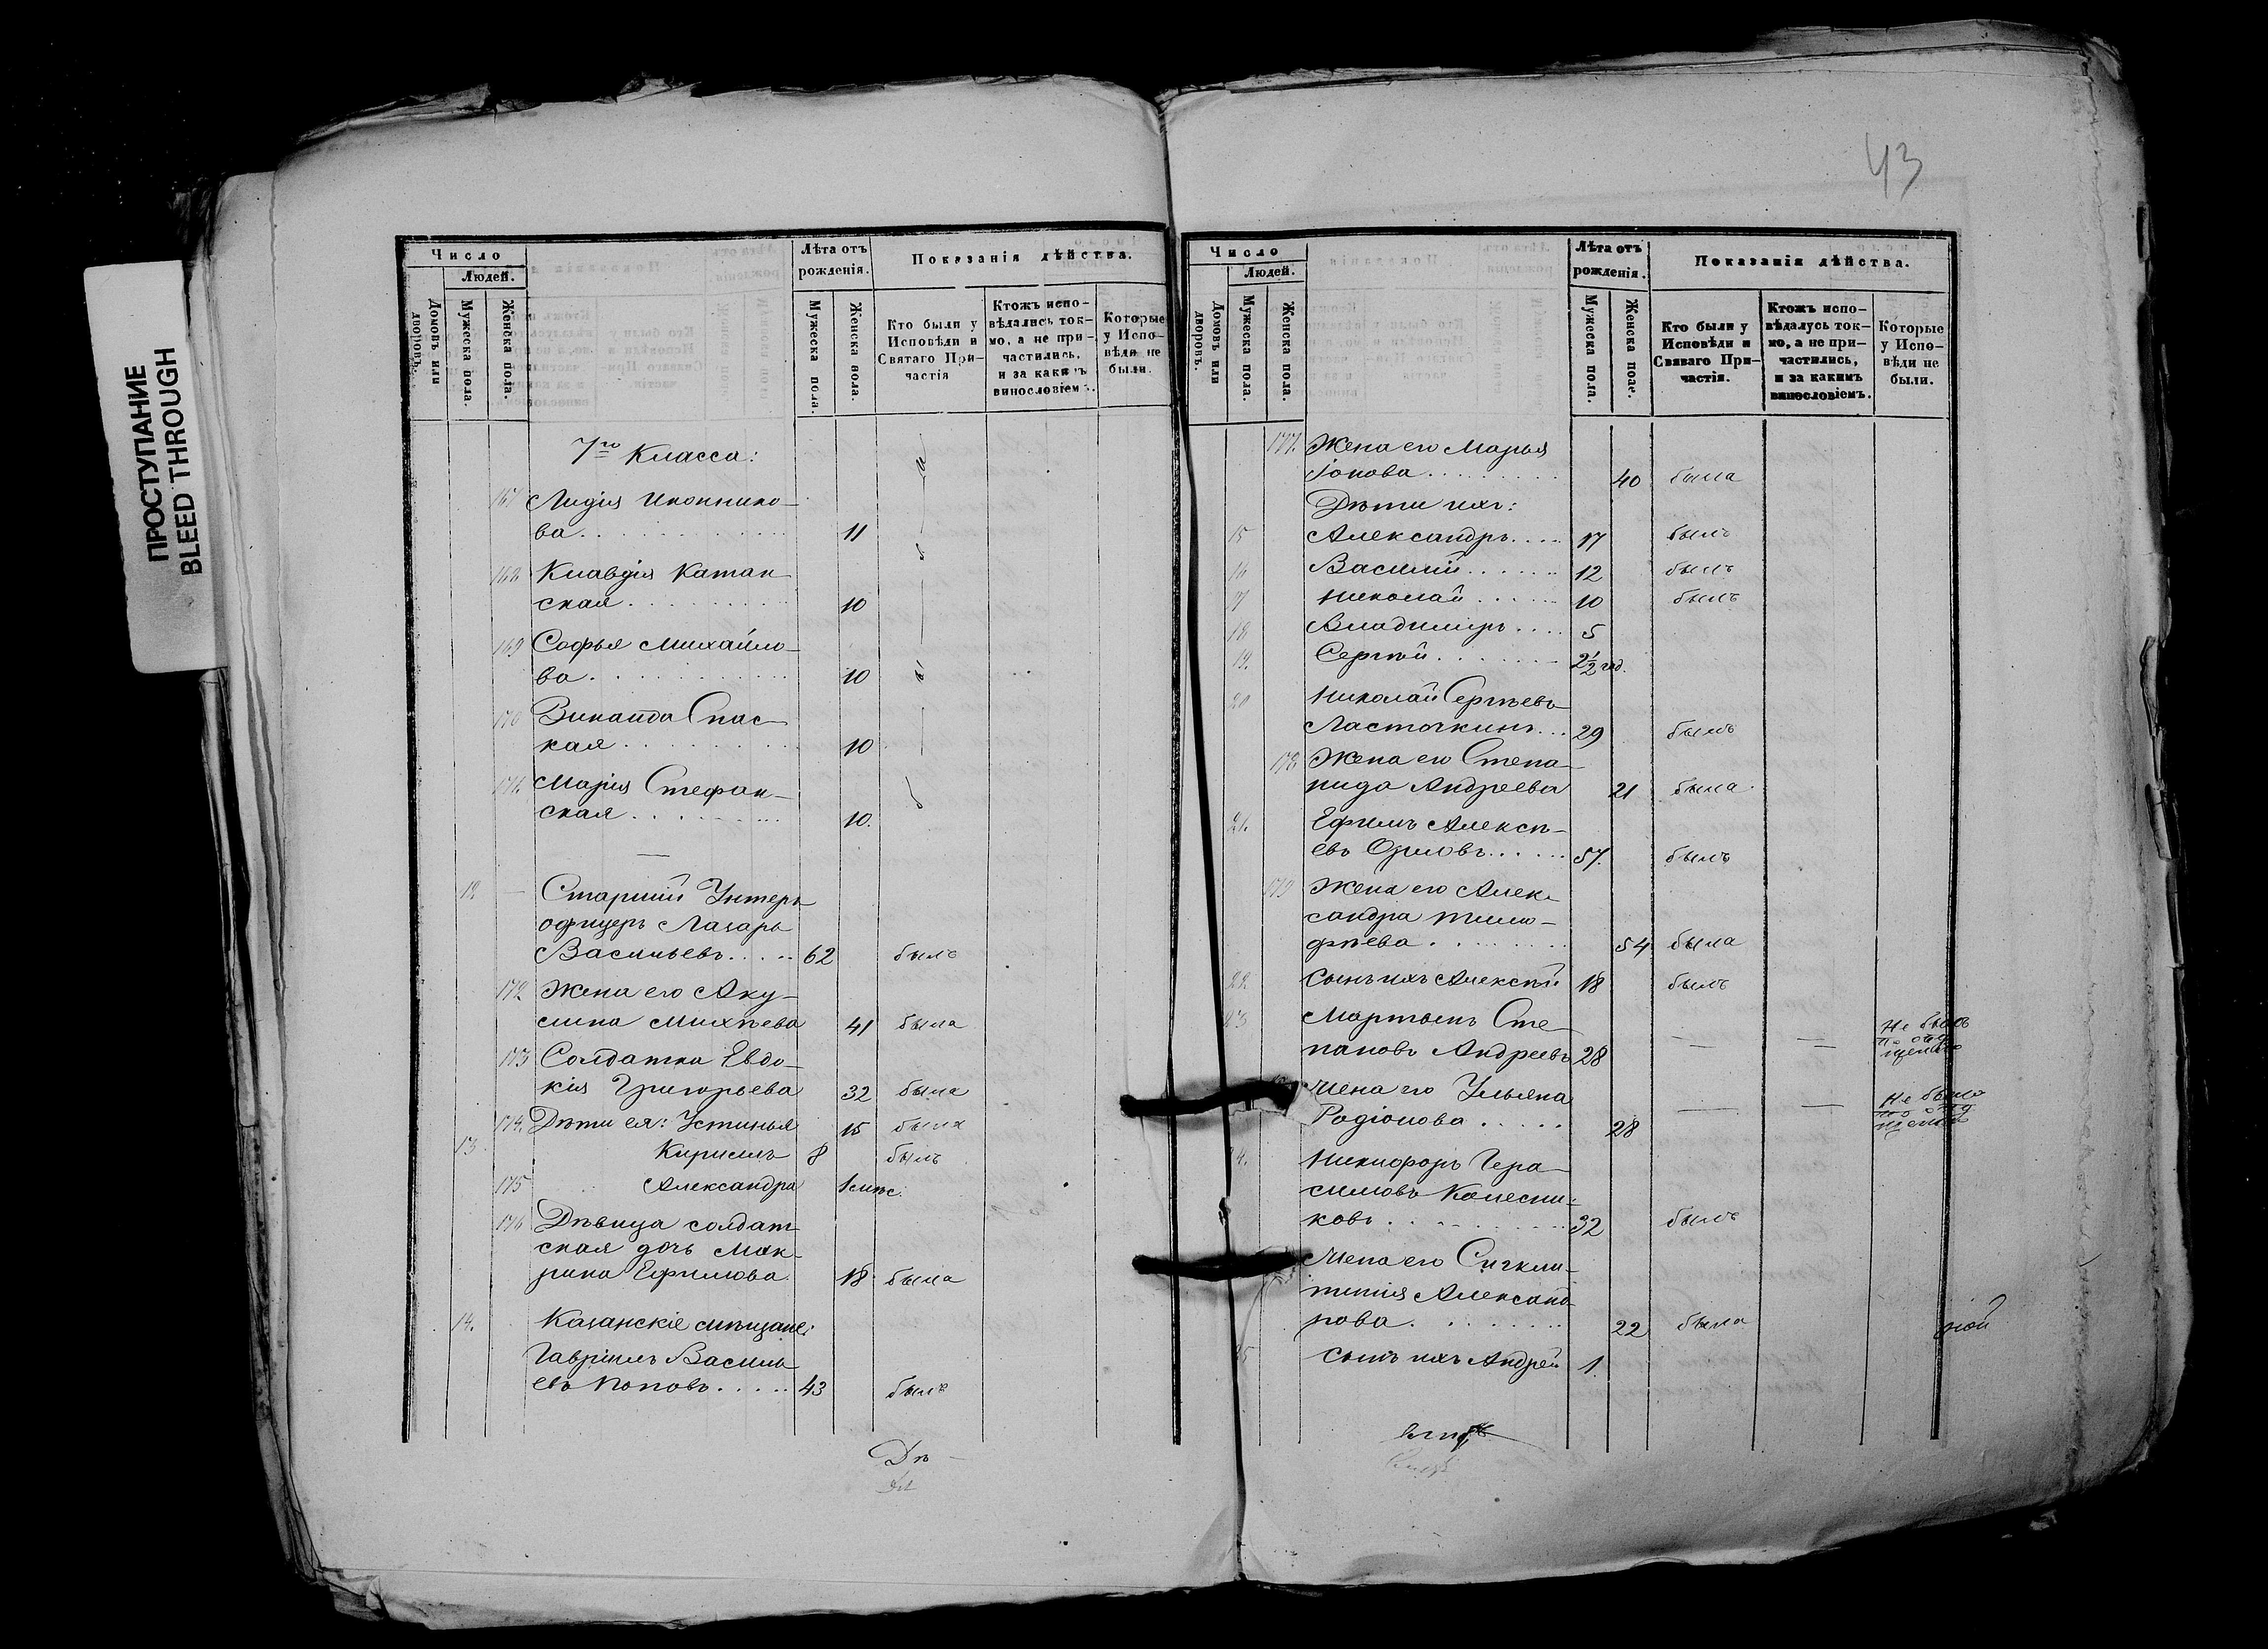 ПРОСТУПАНИЕ
BLEED THROUGH
Число
Людей.
Домовъ или дворовъ.
Мужеска пола.
Женска пола.
Лѣта отъ рожденія.
Мужеска пола.
Женска пола.
Показанія дѣйства.
Кто были у Исповѣди и Святаго При-
частія
Ктожъ испо-
вѣдались ток-
мо, а не при-
частились,
и за какимъ
винословіемъ.
Которые
у Испо-
вѣди не
были.
7го Класса:
167 Лидія Иконнико-
ва 11
168 Клавдія Катан
ская 10
169 Софья Михайло-
ва 10
170 Зинаида Спас
кая 10
171. Марія Стефан-
ская 10.
12. Старшій Унтеръ
офицеръ Лазарь
Васильевъ 62 былъ
172 Жена его Аку-
лина Михѣева 41 была
173 Солдатка Евдо-
кія Григорьева 32 была
174. Дѣти ея: Устинья 15 была
13. Кириллъ 8 былъ
175 Александра
176 Дѣвица солдат
ская дочь Мак-
рина Ефимова 18 была
14. Казанскіе мѣщане:
Гавріилъ Василь
евъ Поповъ 43 былъ
Дѣ-
43
Число
Людей.
Домовъ или дворовъ.
Мужеска пола.
Женска пола.
Лѣта отъ рожденія.
Мужеска пола.
Женска поле.
Показанія дѣйства.
Кто были у Исповѣди и Святаго При-
частія.
Ктожъ испо-
вѣдалусь ток-
мо, а не при-
частились,
и за какимъ
винословіемъ.
Которые
у Испо-
вѣди не
были.
177. Жена его Марья
Іонова 40 была
Дѣти ихъ:
15 Александръ 17 былъ
16 Василій 12 былъ
17 Николай 10 былъ
18 Владиміръ 5
19. Сергѣй 2½ год.
20 Николай Сергѣевъ
Ласточкинъ 29 былъ
178 Жена его Степа-
нида Андреева 21 была
21. Ефимъ Алексѣ-
евъ Орловъ 57. былъ
179 Жена его Алек-
сандра Тимо-
фѣева 54 была
22. Сынъ ихъ Алексѣй 18 былъ
23 Мартынъ Сте-
пановъ Андреевъ 28 Не былъ
Жена его Ульяна
Родіонова 28 Не была
24. Никифоръ Гера-
симовъ Колесни-
ковъ 32 былъ
Жена его Сигкли-
тикія Александ-
рова 22 была
Сынъ ихъ Андрей 1.